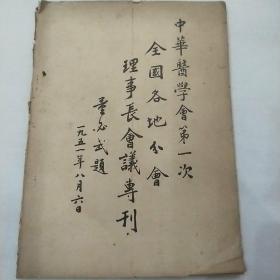 中華醫學會第一次
全國各地分會
理事長會議專刊
董必武題
一九五一年八月六日